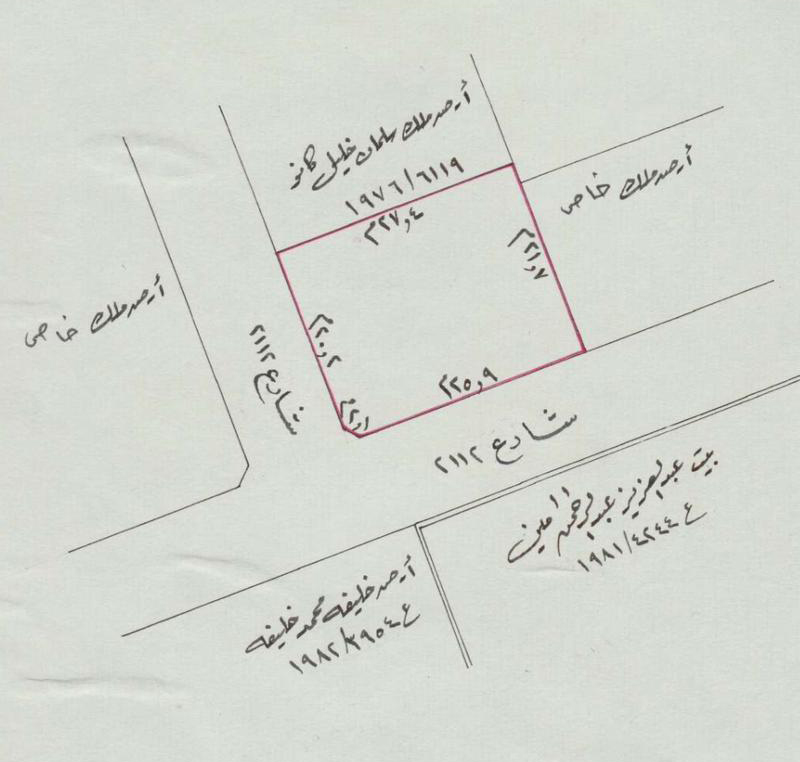 أرصد ملك سلمان خليل كانو
١٩٧٦/٦١١٩
٢٧,٤م
أرصد ملك خاص
٢١,٧م
أرصد ملك خاص
شارع ٢١١٢
٢٠,٢م
٢,١م
٢٥,٩م
شارع ٢١١٢
بيت عبدالعزيز عبدالرحمن الأمين
ع ١٩٨١/٤٢٤٤
أرصد خليفه محمد خليفه
ع ١٩٨٢/٣٩٥٤